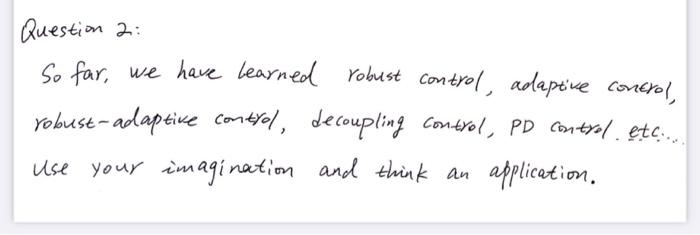 Question 2:
So far, we have learned robust control, adaptive control,
robust-adaptive control, decoupling control, PD control. etc....
Use your imagination and think an application.